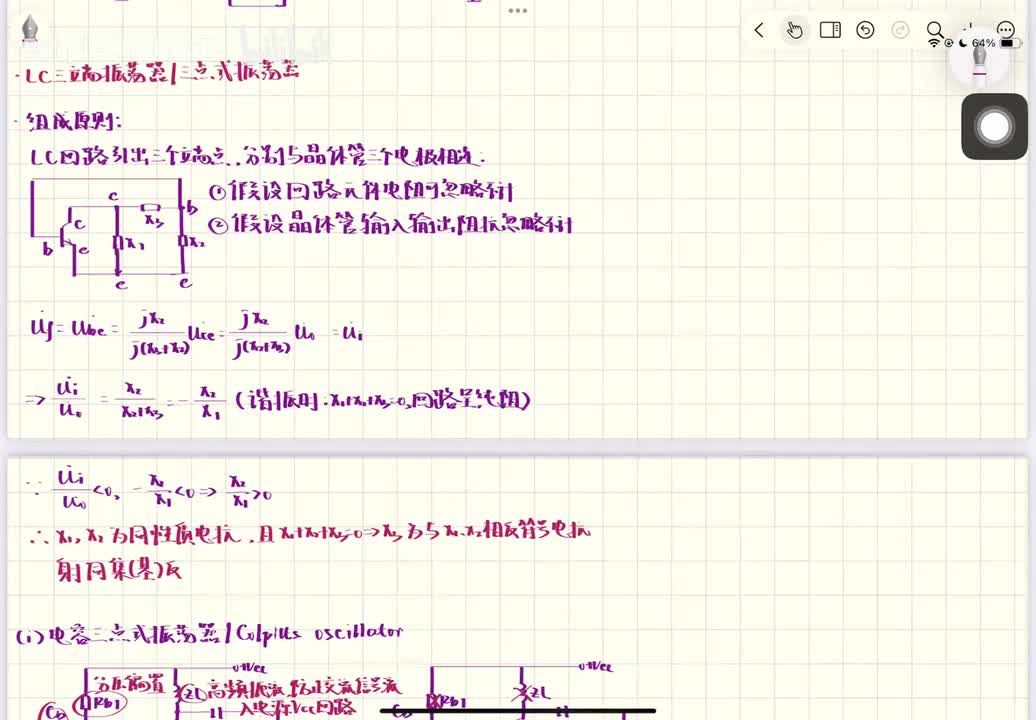 64%
·LC三端振荡器/三点式振荡器
·组成原则:
LC回路引出三个端点,分别与晶体管三个电极相连.
①假设回路元件电阻可忽略不计
②假设晶体管输入输出阻抗忽略不计
c
c X3 b
b e X1 X2
e e
U̇f = U̇be = jX2/j(X3+X2) U̇ce = jX2/j(X2+X3) U̇o = U̇i
=> U̇i/U̇o = X2/(X2+X3) = -X2/X1 (谐振时.X1+X2+X3=0,回路呈纯阻)
∵ U̇i/U̇o <0, -X2/X1 <0 => X2/X1 >0
∴ X1, X2 为同性质电抗,且X1+X2+X3=0 => X3为与X1.X2相反符号电抗
射同集(基)反
(i)电容三点式振荡器/Colpitts oscillator
o+Vcc o+Vcc
分压偏置 ZL 高频扼流,防止交流信号流
Rb1 入电源Vcc回路 Rb1 ZL
Cb Cb